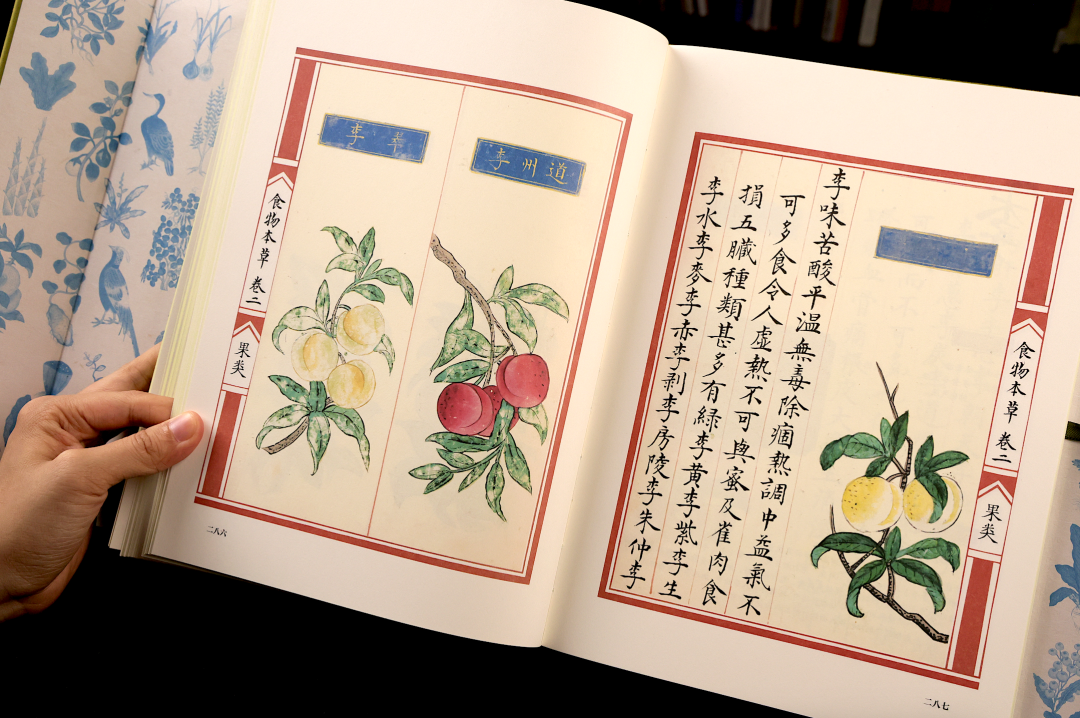 道州李
李
食物本草 卷二
果类
二八六
食物本草 卷二
果类
李味苦酸平温無毒除痼熱調中益氣不
可多食令人虛熱不可與蜜及雀肉食
損五臟種類甚多有綠李黄李紫李生
李水李麥李赤李剥李房陵李朱仲李
二八七